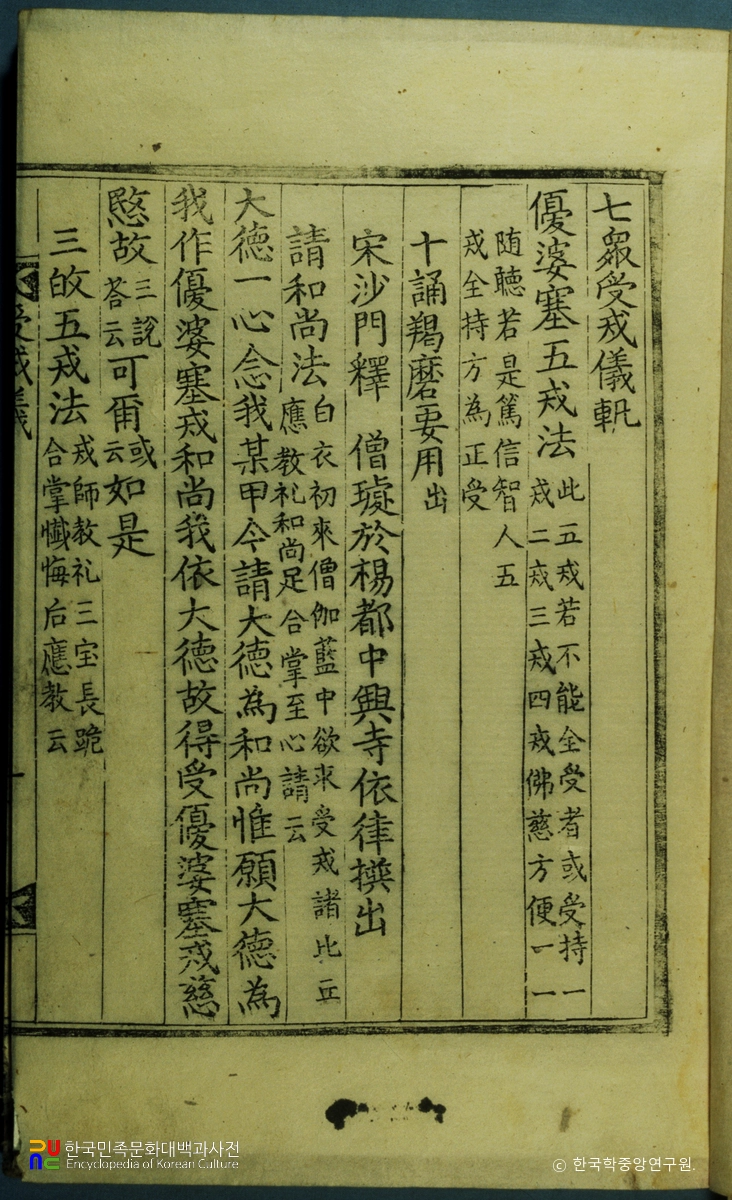 七衆受戒儀軌
優婆塞五戒法 此五戒若不能全受者或受持一
戒二戒三戒四戒佛慈方便一一
随聽若是篤信智人五
戒全持方為正受
十誦羯磨要用出
宋沙門釋 僧璩於楊都中興寺依律撰出
請和尚法 白衣初來僧伽藍中欲求受戒諸比丘
應教礼和尚足合掌至心請云
大德一心念我某甲今請大德為和尚惟願大德為
我作優婆塞戒和尚我依大德故得受優婆塞戒慈
愍故 三說
答云 可爾 或
云 如是
三皈五戒法 戒師教礼三宝長跪
合掌懺悔后應教云
受戒儀
一
한국민족문화대백과사전
Encyclopedia of Korean Culture
© 한국학중앙연구원